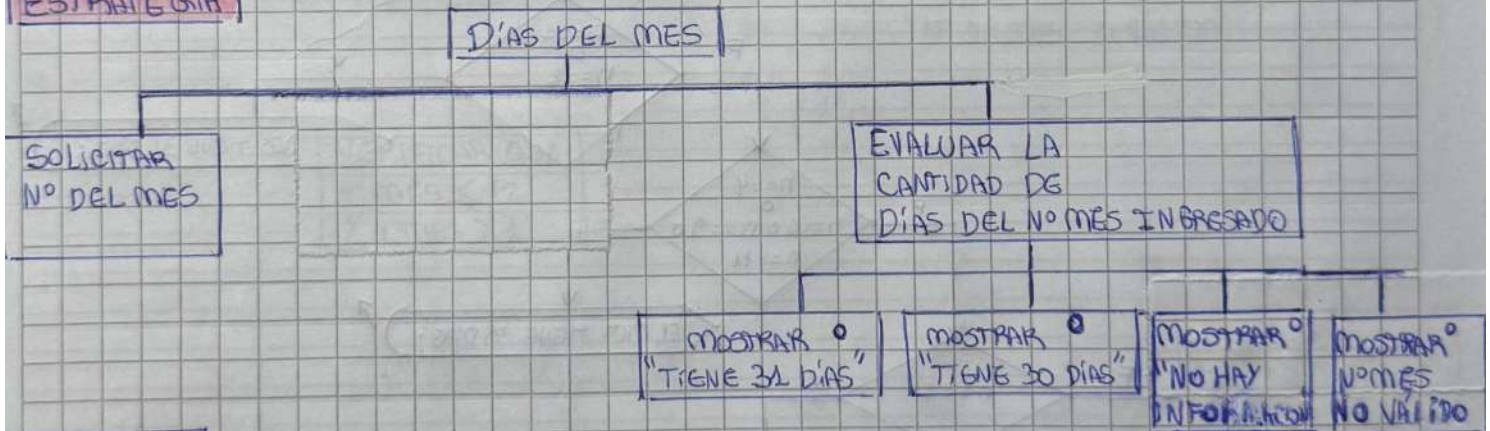 ESTRATEGIA
DÍAS DEL MES
SOLICITAR
Nº DEL MES
EVALUAR LA
CANTIDAD DE
DÍAS DEL Nº MES INGRESADO
MOSTRAR º
"TIENE 31 DÍAS"
MOSTRAR º
"TIENE 30 DÍAS"
MOSTRAR º
"NO HAY
INFORMACIÓN
MOSTRAR º
Nº MES
NO VÁLIDO